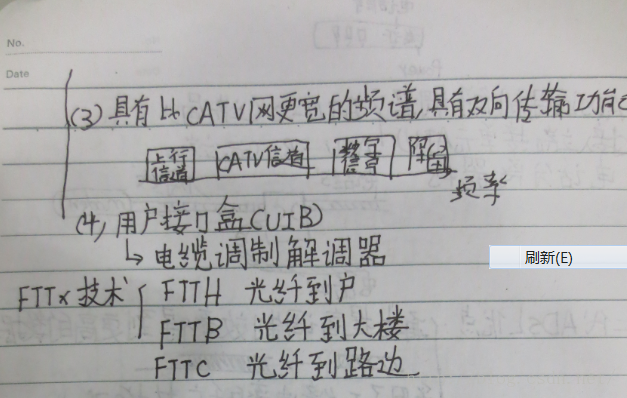 No.
Date
(3) 具有比CATV网更宽的频谱,具有双向传输功能
上行信道 CATV信道 数字信号 保留
频率
(4) 用户接口盒(UIB)
↳ 电缆调制解调器
刷新(E)
FTTx技术 FTTH 光纤到户
FTTB 光纤到大楼
FTTC 光纤到路边